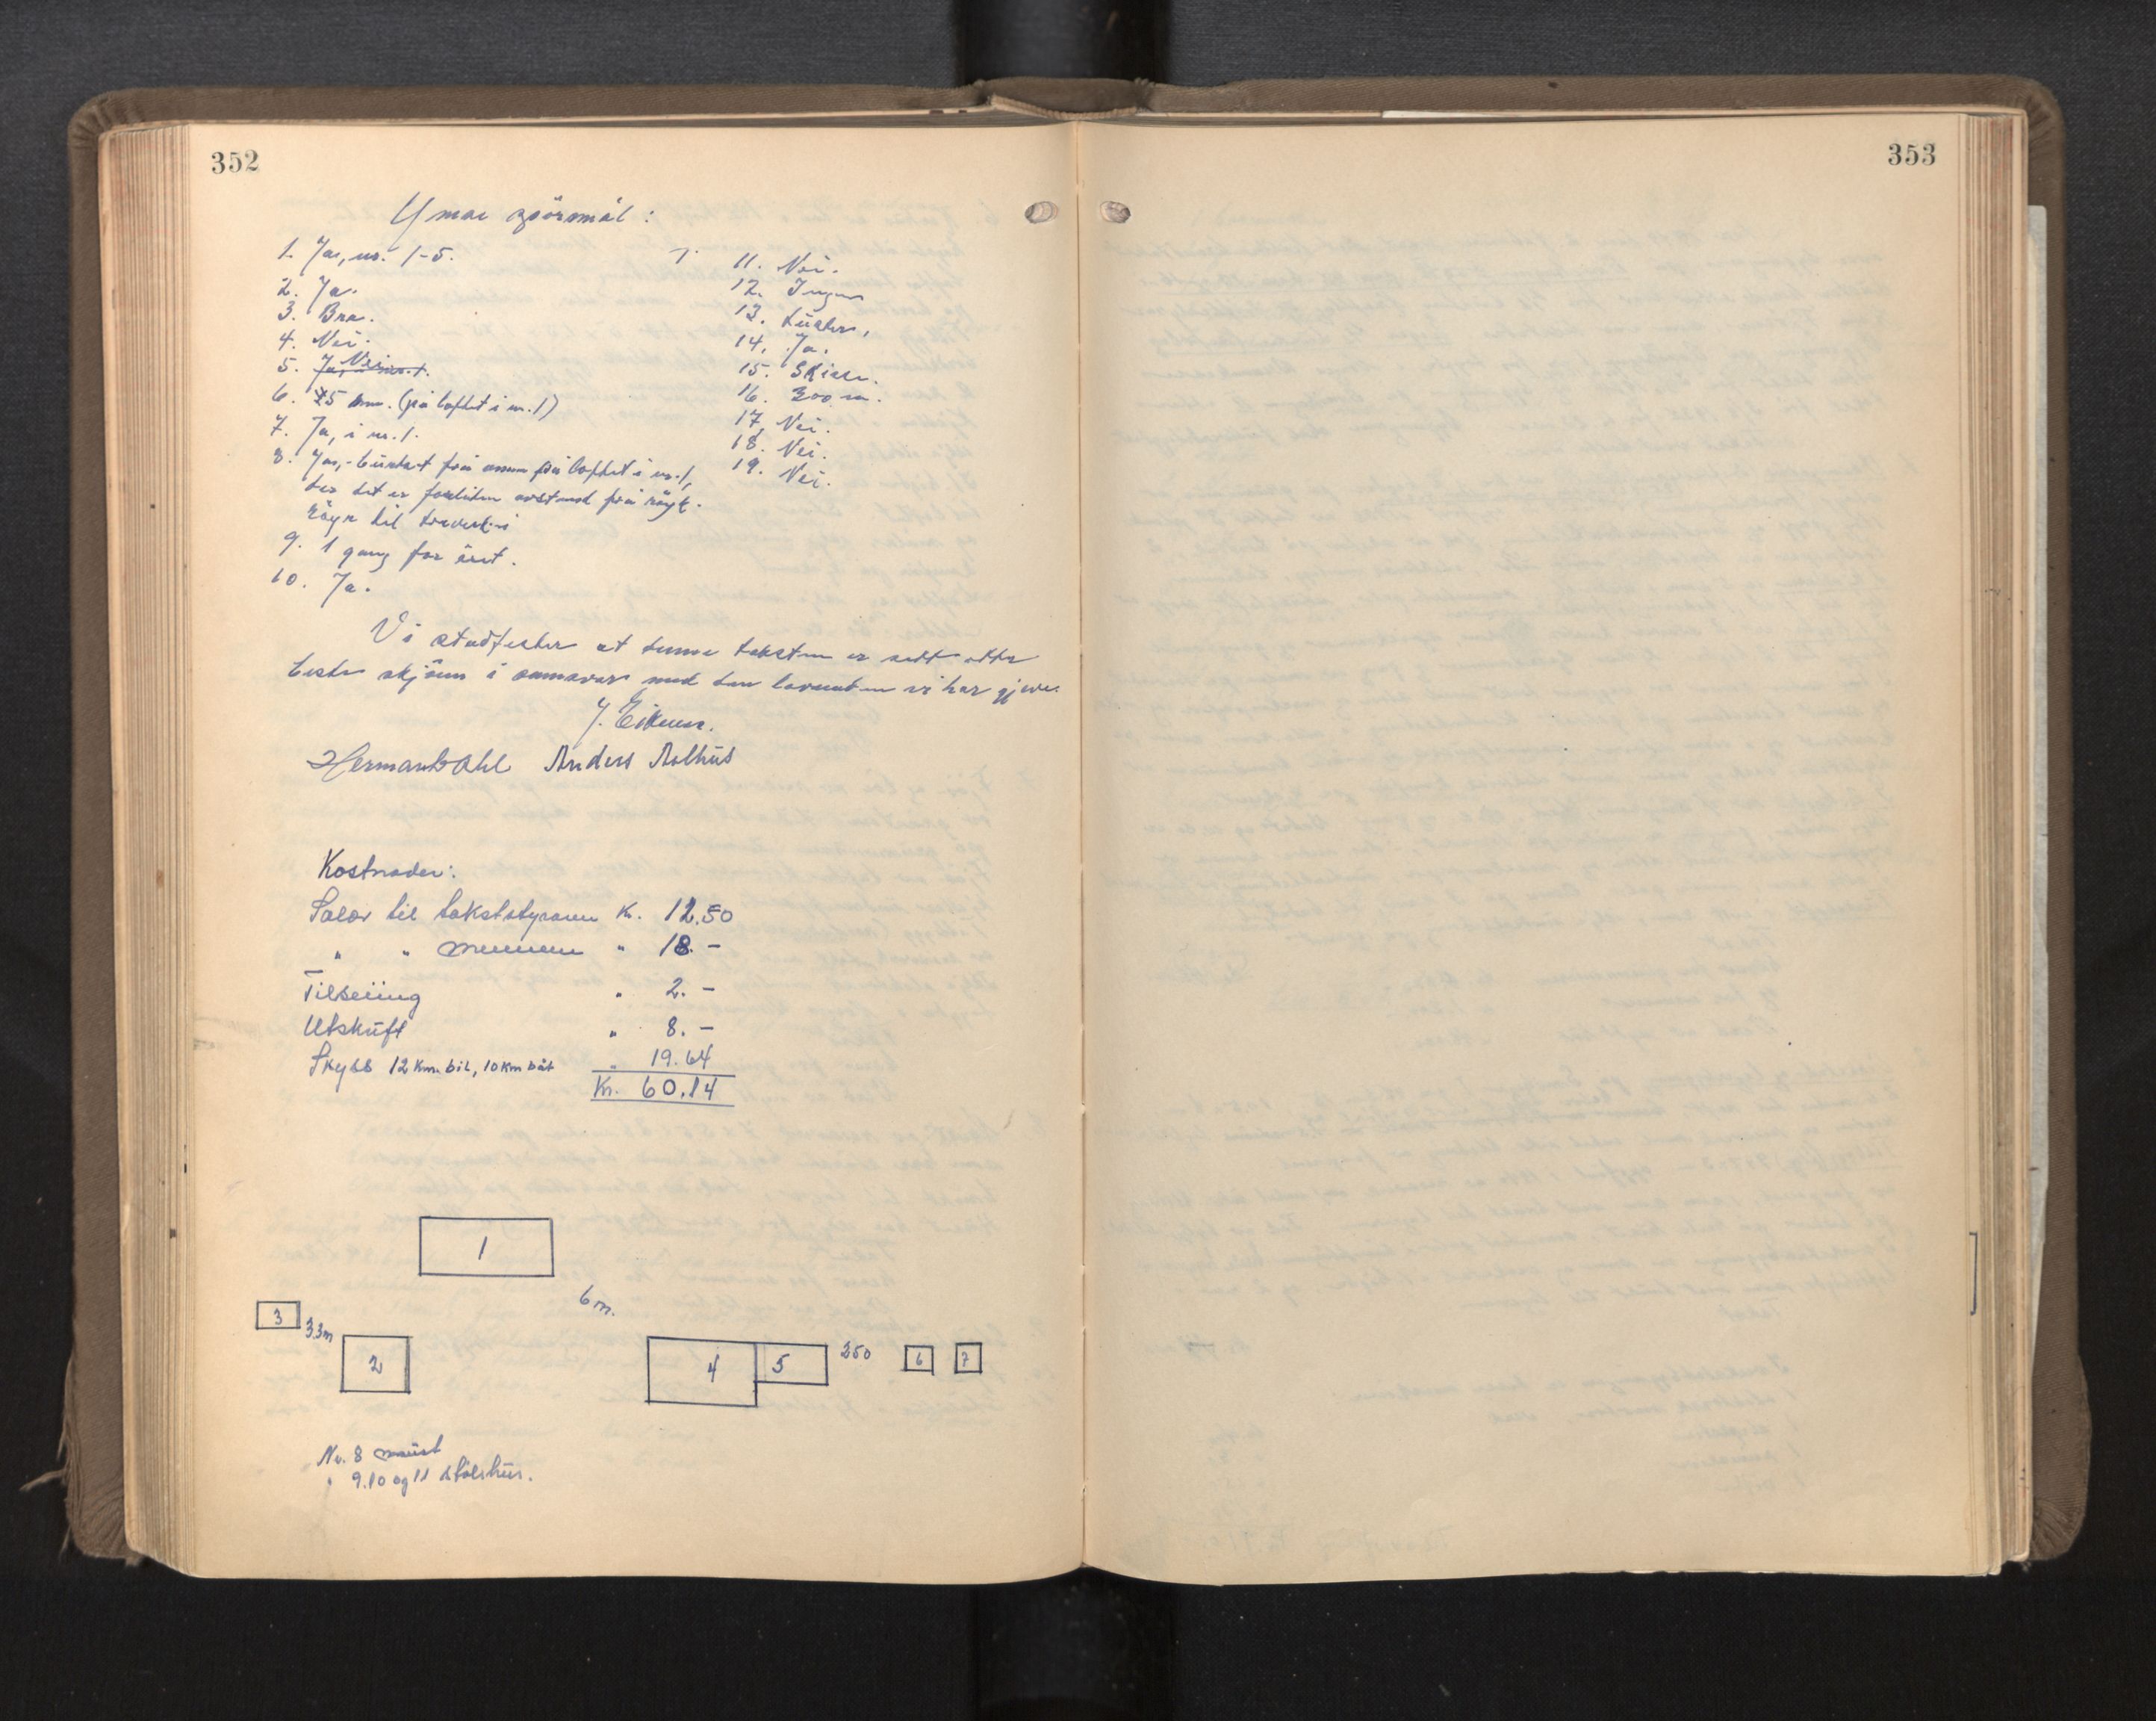 352
353
Ymse spörsmål:
1. Ja, nr. 1-5.
2. Ja.
3. Bra.
4. Nei.
5. Nei
6. 25 (på loftet i nr. 1)
7. Ja, i nr. 1.
8. Ja, - på loftet i nr. 1,
der det er for liten avstand frå röyk-
röyr til treverk
9. 1 gang for året.
10. Ja.
11. Nei.
12. Ingen
13.
14. Ja.
15. Skisse.
16. 300 m.
17. Nei.
18. Nei.
19. Nei.
Vi stadfester at denne taksten er sett etter
beste skjönn i samsvar med den vi har gjeve.
J. Eikenes.
Herman Dahl Anders Aolhus
Kostnader:
Salær til takststyraren Kr. 12.50
" " mennene " 18. -
Tilseiing " 2. -
Utskrift " 8. -
Skyss 12 km. bil, 10 km båt " 19.64
Kr. 60.14
1
6 m.
3
3.3m
2
4
5
250
6
7
Nr. 8 naust
" 9.10 og 11 stölshus.